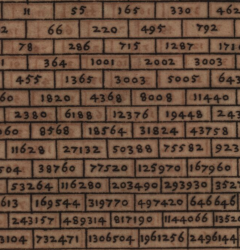 11 55 165 330 462
2 66 220 495 792
78 286 715 1287 171
364 1001 2002 3003
455 1365 3003 5005 643
60 1820 4368 8008 11440
2380 6188 12376 19448 243
8568 18564 31824 43758
11628 27132 50388 75582 923
504 38760 77520 125970 167960
53264 116280 203490 293930 352
613 169544 319770 497420 646646
243157 489314 817190 1144066 1352
3104 732471 1306504 1961256 2496144